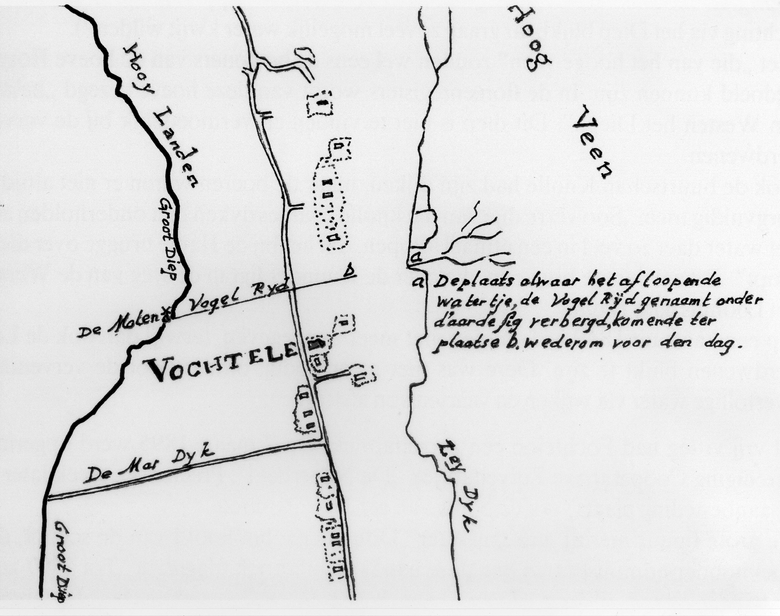 Hoog
Veen
Hooy Landen
Groot Diep
De Molen
Vogel Ryd
b
a
a
Deplaats alwaar het afloopende
watertje, de Vogel Rÿd genaamt onder
d'aarde sig verbergd, komende ter
plaatse b. wederom voor den dag.
VOCHTELE
De Mar Dyk
Ley Dyk
Groot Diep